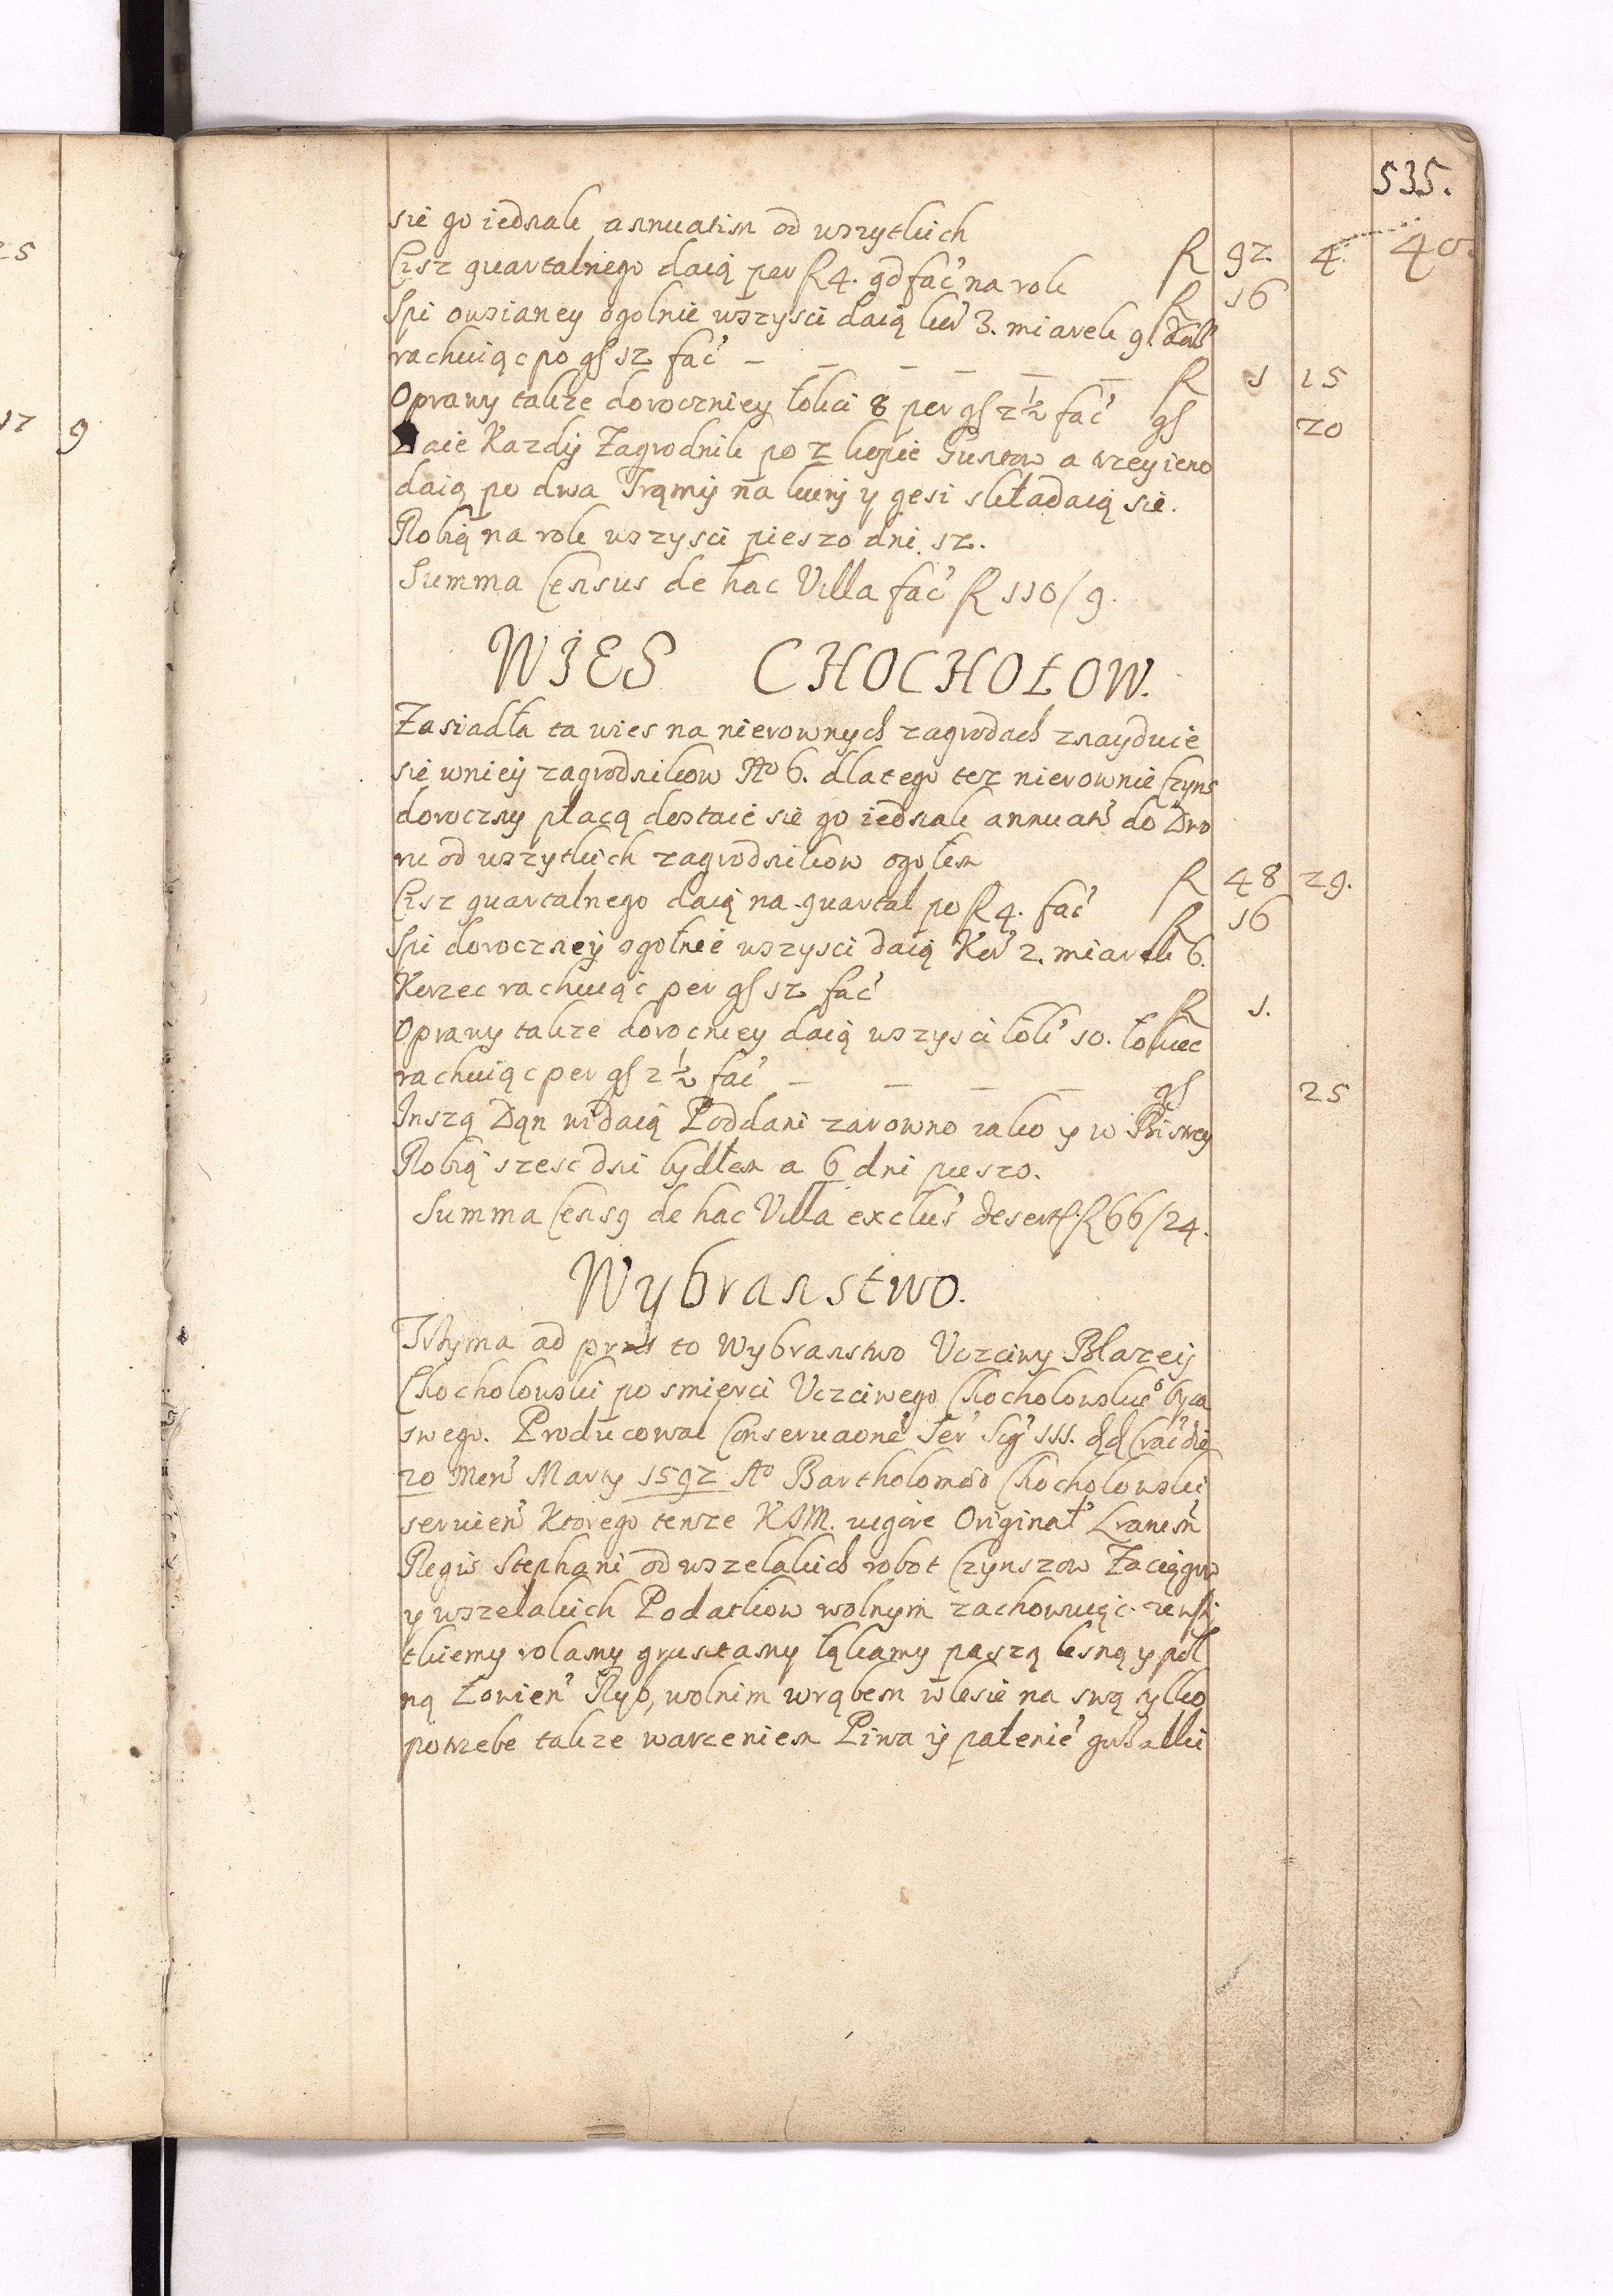 535.
40.
sie go iednak annuatim od wszytkich R 92. 4.
Czsz quartalnego daią per R 4. qd fac' na rok R 16
Spi owsianey ogolnie wszysci daią ker' 3. miarek 9
rachuiąc po gs 12 fac' – – – – – – R 1 15
Oprawy takze doroczniey łokci 8 per gs 2½ fac' gs 20
Daie Kazdy Zagrodnik po 2 kopie Guntow a trzey ieno
daią po dwa Tramy na kury y gesi składaią sie.
Robią na rok wszysci pieszo dni 12.
Summa Census de hac Villa fac' R 110/9.
WIES CHOCHOŁOW.
Zasiadła ta wies na nierownych zagrodach znayduie
sie wniey zagrodnikow No 6. dlatego tez nierownie Czyns
doroczny płacą dostaie sie go iednak annuat' do Dwo
ru od wszytkich zagrodnikow ogołem R 48 29.
Czsz quartalnego daią na quartal po R 4. fac' R 16
Spi doroczney ogolnie wszysci daią Ker' 2. miarek 6.
Korzec rachuiąc per gs 12 fac' R 1.
Oprawy takze dorocniey daią wszysci łok' 10. łokiec
rachuiąc per gs 2½ fac' – – – – gs 25
Inszą Dąn wȳdaią Poddani zarowno iako y w
Robią szesc dni bydłem a 6 dni pieszo.
Summa Censq de hac Villa exclus' desert' R 66/24.
Wybranstwo.
Trzyma ad prns to Wybranstwo Uczciwy Błazeij
Chocholowski po smierci Uczciwego Chocholowskieo oyca
swego. Producował Conseruaone' Ser' Sig' III. dd Crac' die
20 Men' Marty 1592 Ao Bartholomæo Chocholowski
seruien' Ktorego tenze KJM. uigore Original' Lranem'
Regis Stephani od wszelakich robot Czynszow Zaciągow
y wszelakich Podatkow wolnym zachowuiąc. zewszy
tkiemy rolamy gruntamy łąkamy paszą lesną y pol
ną Łowien' Ryb, wolnim wrąbem w lesie na swą tylko
potrzebe takze warzeniem Piwa ij palenie' gorzałki
25
17 9